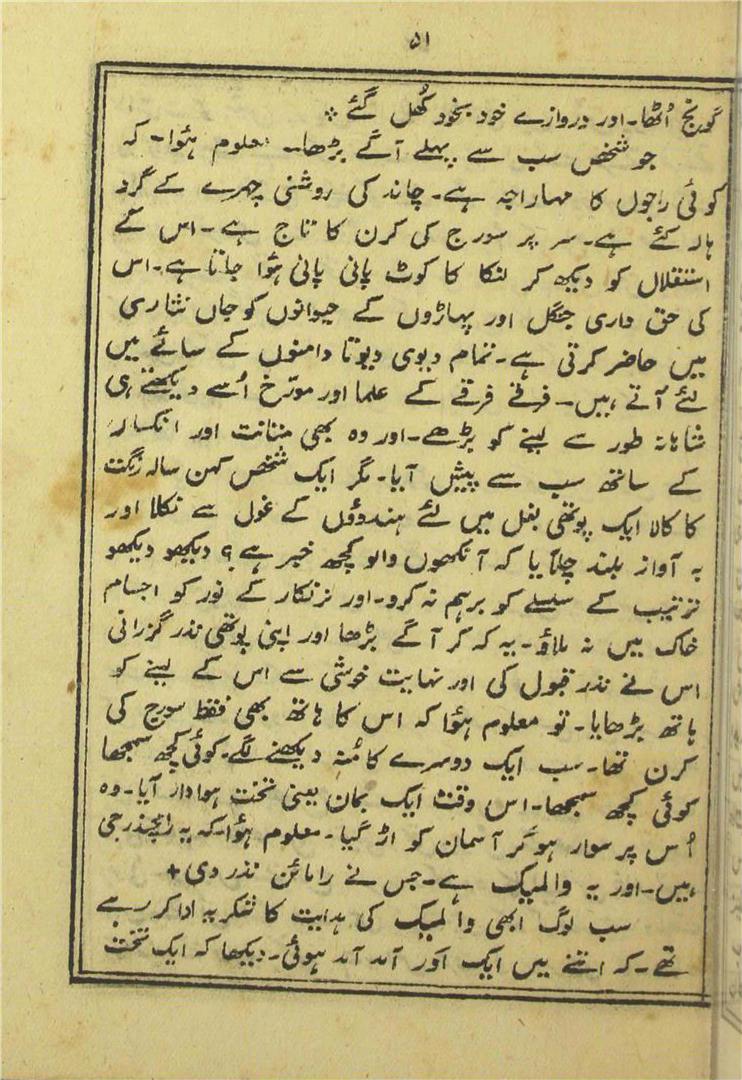 ۵۱
گونج اُٹھا۔ اور دروازے خود بخود کُھل گئے ٭
جو شخص سب سے پہلے آگے بڑھا۔ معلوم ہئوا۔ کہ
کوئی راجوں کا مہاراجہ ہے۔ چاند کی روشنی چہرے کے گرد
ہالہ کئے ہے۔ سر پر سورج کی کرن کا تاج ہے۔ اس کے
استقلال کو دیکھ کر لنکا کا کوٹ پانی پانی ہئوا جاتا ہے۔ اس
کی حق داری جنگل اور پہاڑوں کے حیوانوں کو جاں نثاری
میں حاضر کرتی ہے۔ تمام دیوی دیوتا دامنوں کے سائے میں
لئے آتے ہیں۔ فرقے فرقے کے علما اور مورّخ اُسے دیکھتے ہی
شاہانہ طور سے لینے کو بڑھے۔ اور وہ بھی متانت اور انکسار
کے ساتھ سب سے پیش آیا۔ مگر ایک شخص کہن سالہ رنگت
کا کالا ایک پوتھی بغل میں لئے ہندوؤں کے غول سے نکلا اور
بہ آواز بلند چلّایا کہ آنکھوں والو کچھ خبر ہے؟ دیکھو دیکھو
ترتیب کے سلسلے کو برہم نہ کرو۔ اور نرنکار کے نور کو اجسام
خاک میں نہ ملاؤ۔ یہ کہ کر آگے بڑھا اور اپنی پوتھی نذر گزرانی
اس نے نذر قبول کی اور نہایت خوشی سے اس کے لینے کو
ہاتھ بڑھایا۔ تو معلوم ہئوا کہ اس کا ہاتھ بھی فقط سورج کی
کرن تھا۔ سب ایک دوسرے کا مُنہ دیکھنے لگے۔ کوئی کچھ سمجھا
کوئی کچھ سمجھا۔ اس وقت ایک بمان یعنی تخت ہوادار آیا۔ وہ
اُس پر سوار ہو کر آسمان کو اڑ گیا۔ معلوم ہئوا۔ کہ یہ رامچندرجی
ہیں۔ اور یہ والمیک ہے۔ جس نے رامائن نذر دی +
سب لوگ ابھی والمیک کی ہدایت کا شکریہ ادا کر رہے
تھے۔ کہ اتنے میں ایک اَور آمد آمد ہوئی۔ دیکھا کہ ایک تخت